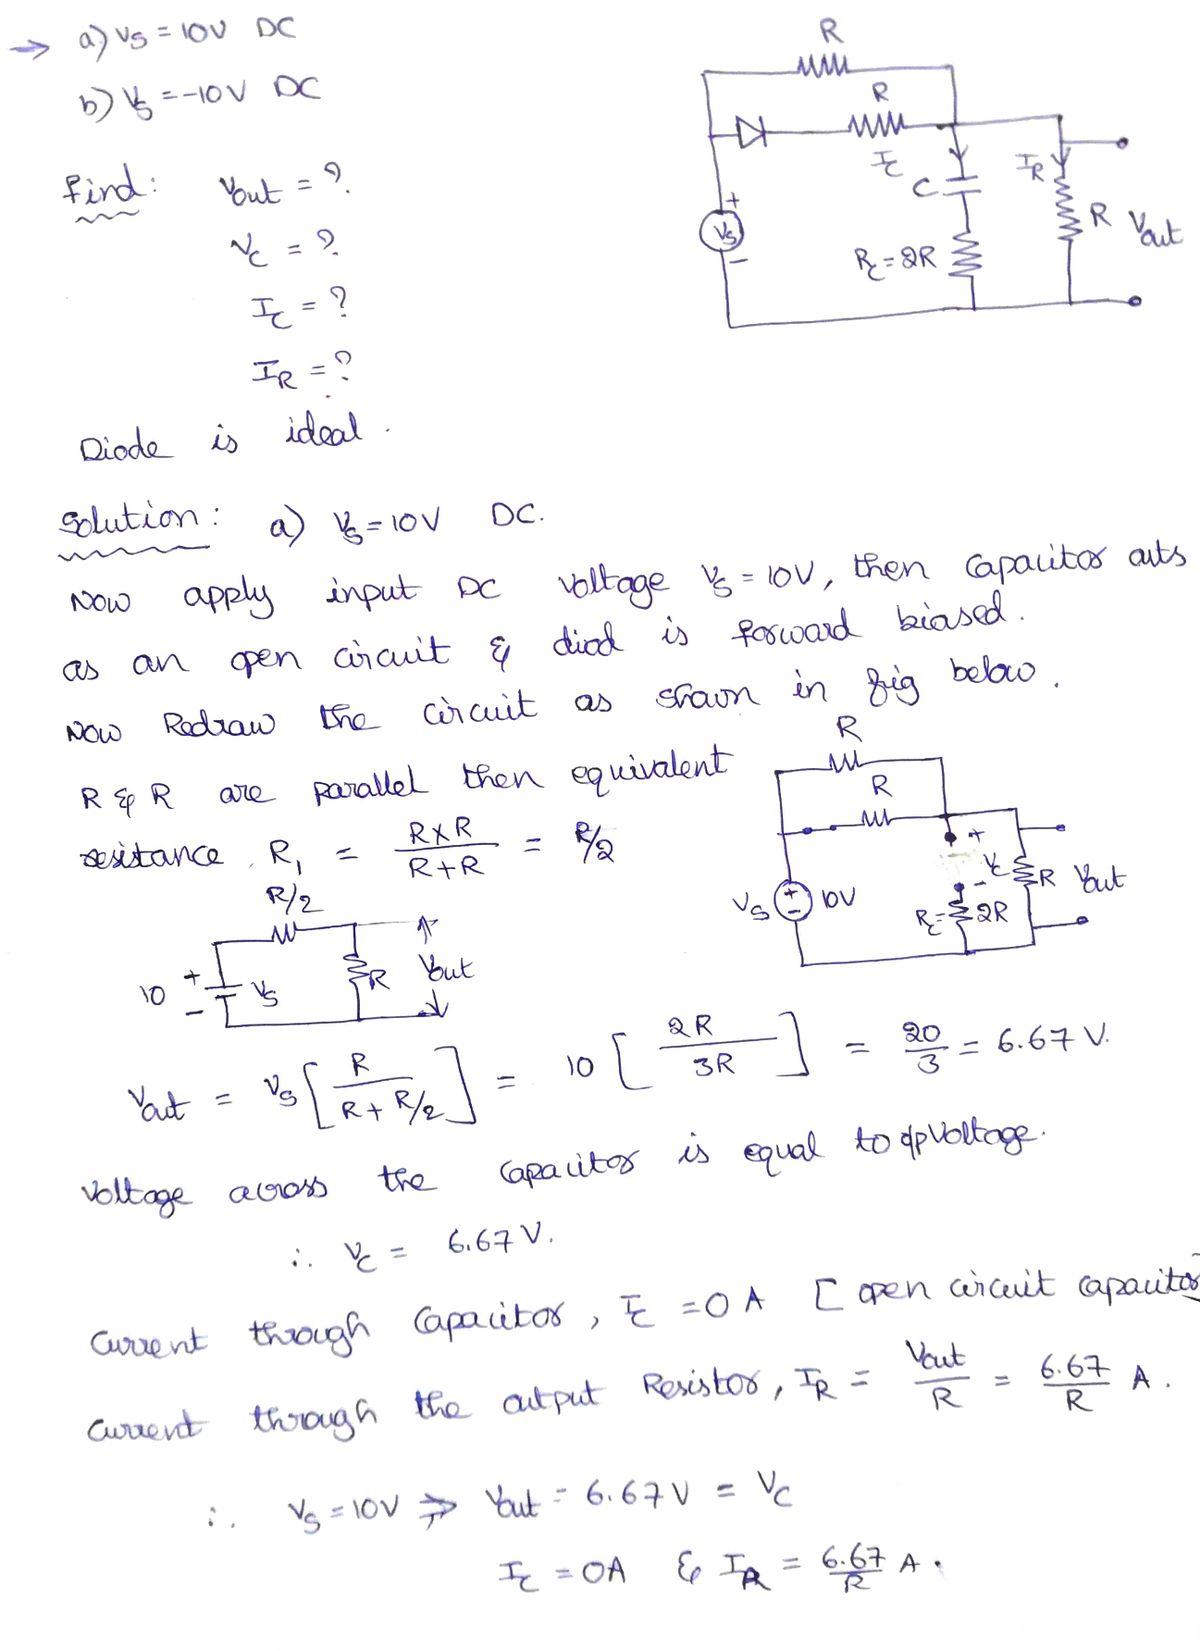 → a) Vs = 10V DC
b) Vs = -10V DC
Find: Vout = ?
Vc = ?
Ic = ?
IR = ?
Diode is ideal.
R
R
Ic
C
IR
R
Vout
+
Vs
-
Rc = 2R
Solution: a) Vs = 10V DC.
Now apply input DC voltage Vs = 10V, then capacitor acts
as an open circuit & diod is forward biased.
Now Redraw the circuit as shown in fig below.
R & R are parallel then equivalent
resistance, R1 = R×R / R+R = R/2
R
R
+
Vc
-
R
Vout
Vs
+
-
10V
Rc = 2R
R/2
10
+
-
Vs
R
Vout
Vout = Vs [R / R + R/2] = 10 [2R / 3R] = 20/3 = 6.67 V.
Voltage across the capacitor is equal to o/p voltage.
∴ Vc = 6.67 V.
Current through capacitor, Ic = 0 A [open circuit capacitor
Current through the output Resistor, IR = Vout / R = 6.67 / R A.
∴ Vs = 10V ⇒ Vout = 6.67 V = Vc
Ic = 0A & IR = 6.67 / R A.